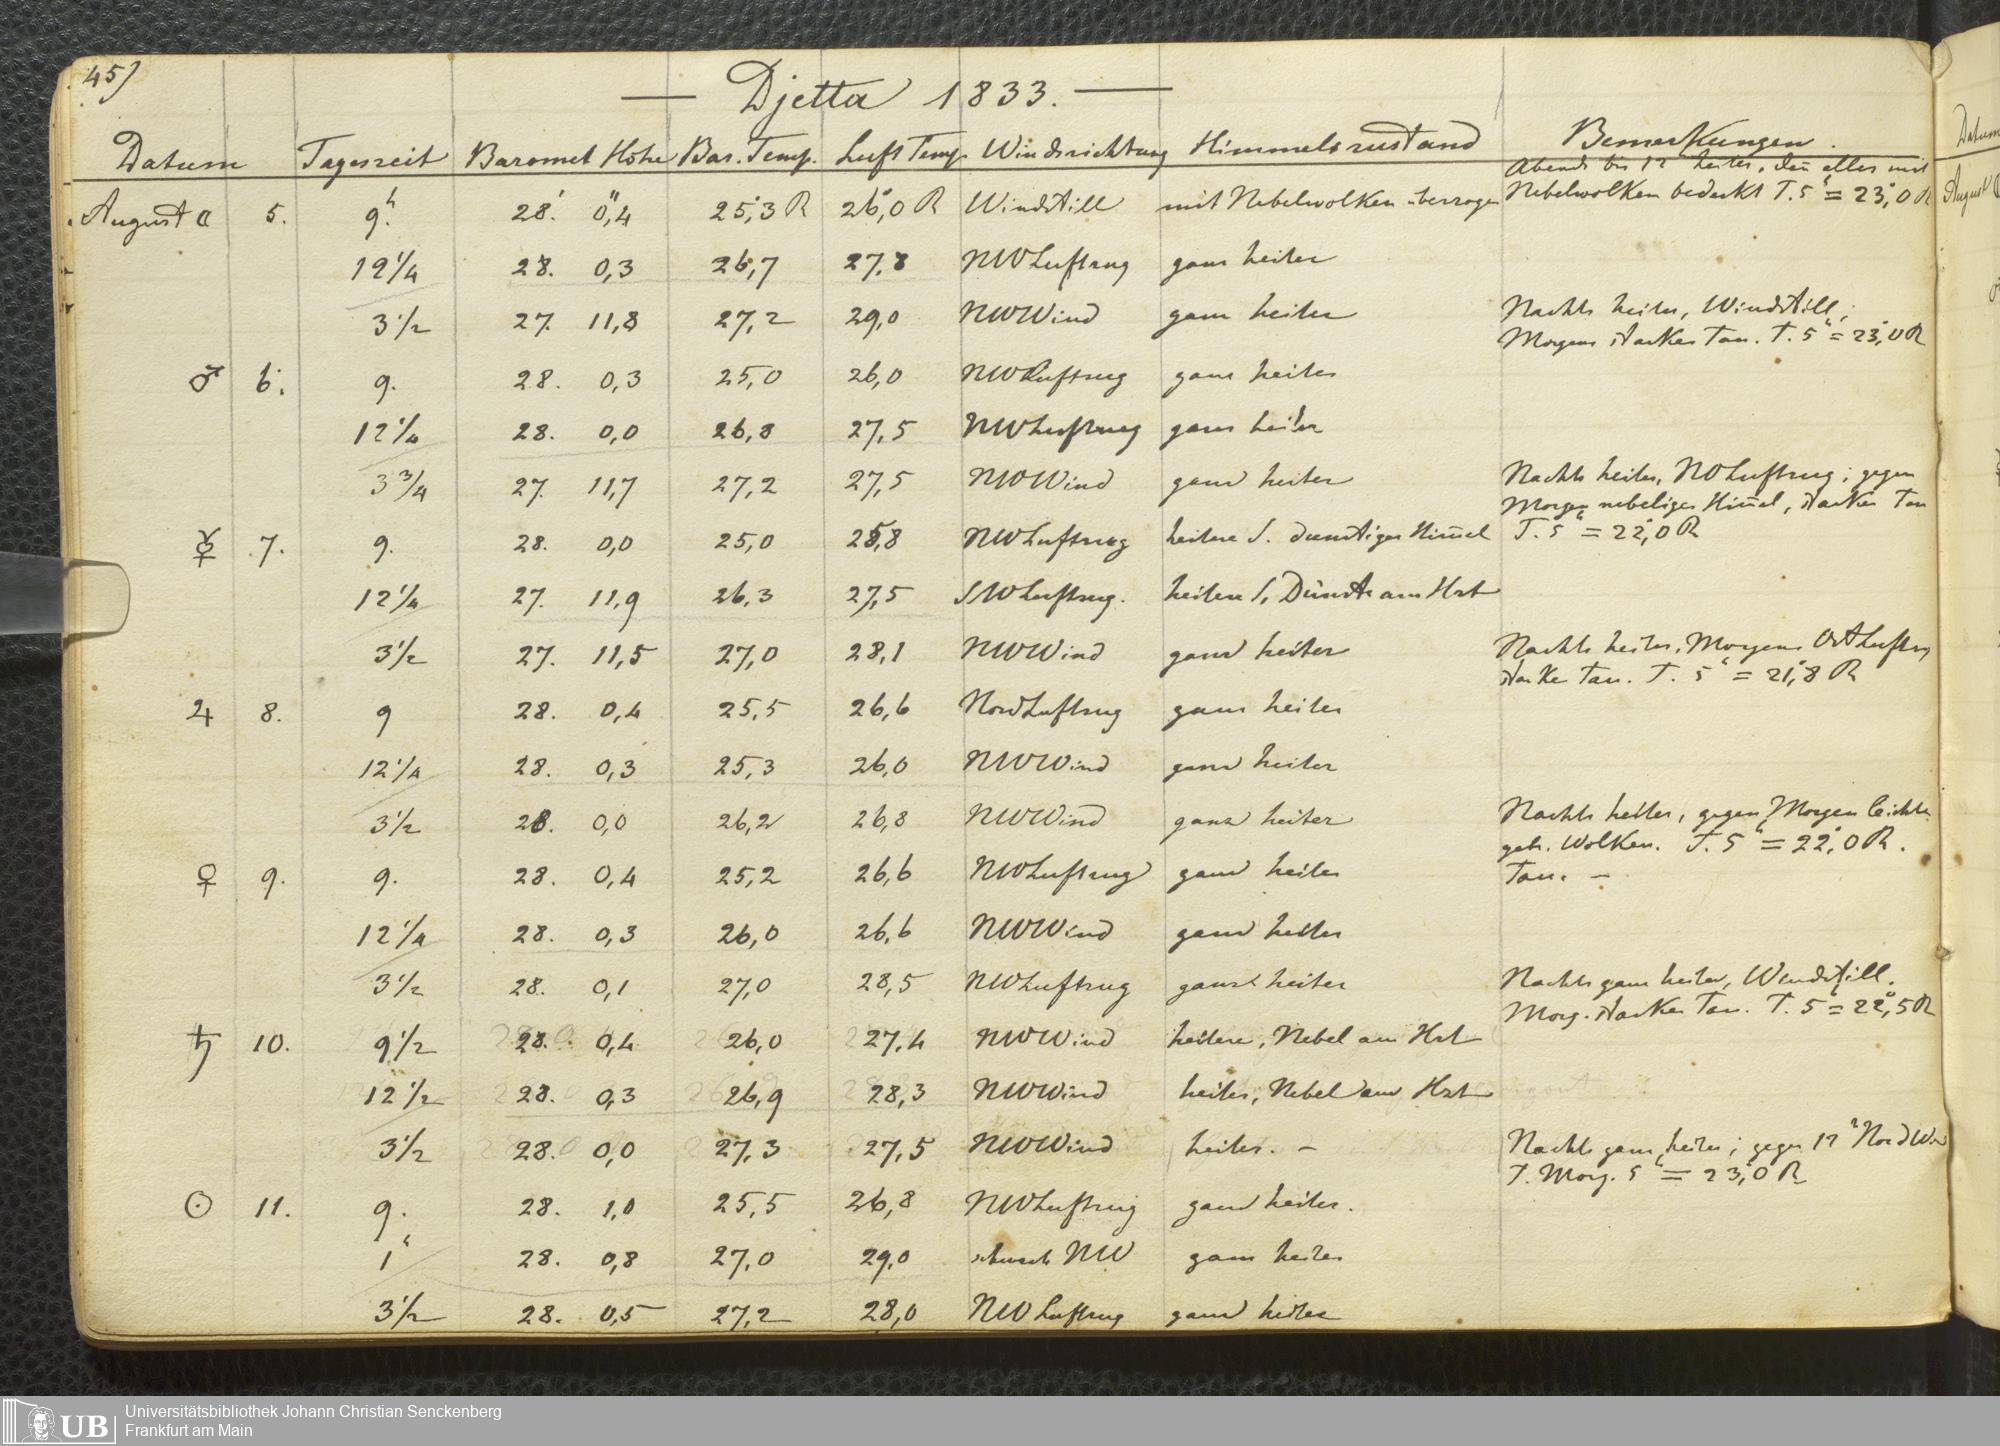 45)
— Djetta 1833. —
Datum Tageszeit Baromet Höhe Bar. Temp. Luft Temp. Windsrichtung Himmelszustand Bemerkungen.
Abends bis 12 heiter, den̄ alles mit
August ☾ 5. 9.h 28.' 0,"4 25,°3 R 26,°0 R Windstill mit Nebelwolken überzogen Nebelwolken bedeckt T. 5h = 23,°0 R
12 1/4 28. 0,3 26,7 27,8 NW Luftzug ganz heiter
3 1/2 27. 11,8 27,2 29,0 NW Wind ganz heiter Nachts heiter, Windstill;
Morgens starker Tau. T. 5h = 23,°0 R
♂ 6. 9. 28. 0,3 25,0 26,0 NW Luftzug ganz heiter
12 1/4 28. 0,0 26,8 27,5 NW Luftzug ganz heiter
3 3/4 27. 11,7 27,2 27,5 NW Wind ganz heiter Nachts heiter, NO Luftzug; gegen
Morgen nebeliger Him̄el, starker Tau
☿ 7. 9. 28. 0,0 25,0 25,8 NW Luftzug heitere S. dunstiger Him̄el T. 5h = 22,°0 R
12 1/4 27. 11,9 26,3 27,5 SW Luftzug. heitere S, Dünste am Hzt
3 1/2 27. 11,5 27,0 28,1 NW Wind ganz heiter Nachts heiter, Morgens Ost Luftzug
starker Tau. T. 5h = 21,°8 R
♃ 8. 9 28. 0,4 25,5 26,6 Nord Luftzug ganz heiter
12 1/4 28. 0,3 25,3 26,0 NW Wind ganz heiter
3 1/2 28. 0,0 26,2 26,8 NW Wind ganz heiter Nachts heiter, gegen Morgen leichte
geb. Wolken. T. 5h = 22,°0 R.
♀ 9. 9. 28. 0,4 25,2 26,6 NW Luftzug ganz heiter Tau. —
12 1/4 28. 0,3 26,0 26,6 NW Wind ganz heiter
3 1/2 28. 0,1 27,0 28,5 NW Luftzug ganz heiter Nachts ganz heiter, Windstill.
Morg. starker Tau. T. 5h = 22,°5 R
♄ 10. 9 1/2 28. 0,4 26,0 27,4 NW Wind heitere, Nebel am Hzt
12 1/2 28. 0,3 26,9 28,3 NW Wind heiter, Nebel am Hzt
3 1/2 28. 0,0 27,3 27,5 NW Wind heiter. — Nachts ganz heiter; gegen 12h Nord Win
T. Morg. 5h = 23,°0 R
☉ 11. 9. 28. 1,0 25,5 26,8 NW Luftzug ganz heiter.
1h 28. 0,8 27,0 29,0 schwach NW ganz heiter
3 1/2 28. 0,5 27,2 28,0 NW Luftzug ganz heiter
Datum
August
UB
Universitätsbibliothek Johann Christian Senckenberg
Frankfurt am Main